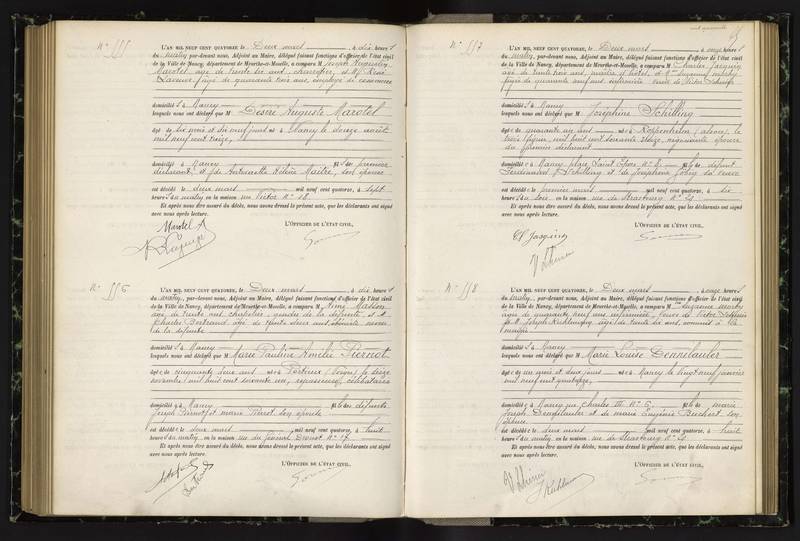 N° 555
L'AN MIL NEUF CENT QUATORZE, le Deux mars, à dix heures
du matin, par-devant nous, Adjoint au Maire, délégué faisant fonctions d'officier de l'état civil
de la Ville de Nancy, département de Meurthe-et-Moselle, a comparu M Joseph Augustin
Marotel âgé de trente six ans, et M René
âgé de quarante trois ans, employé de commerce
domiciliés à Nancy
lesquels nous ont déclaré que M Désiré Auguste Marotel
âgé de six mois et dix neuf jours né à Nancy le douze août
mil neuf cent treize,
domicilié à Nancy fils du premier
déclarant et de Antoinette Hélène Maitre, son épouse
est décédé le deux mars mil neuf cent quatorze, à sept
heures du matin en la maison rue Victor n° 18
Et après nous être assuré du décès, nous avons dressé le présent acte, que les déclarants ont signé
avec nous après lecture.
L'OFFICIER DE L'ÉTAT CIVIL,
Marotel A
N° 556
L'AN MIL NEUF CENT QUATORZE, le Deux mars, à dix heures
du matin, par-devant nous, Adjoint au Maire, délégué faisant fonctions d'officier de l'état civil
de la Ville de Nancy, département de Meurthe-et-Moselle, a comparu M Rémy Masson
âgé de trente ans, chapelier, gendre de la défunte, et M
Charles Bertrand âgé de trente deux ans ébéniste neveu
de la défunte
domiciliés à Nancy
lesquels nous ont déclaré que M Marie Pauline Amélie Pierrot
âgée de cinquante deux ans née à Portieux (Vosges) le seize
novembre mil huit cent soixante un, repasseuse, célibataire
domiciliée à Nancy fille des défunts
Joseph Pierrot et Marie Pierrot son épouse
est décédée le deux mars mil neuf cent quatorze, à huit
heures du matin en la maison rue du Général Drouot n° 17
Et après nous être assuré du décès, nous avons dressé le présent acte, que les déclarants ont signé
avec nous après lecture.
L'OFFICIER DE L'ÉTAT CIVIL,
N° 557
L'AN MIL NEUF CENT QUATORZE, le Deux mars, à onze heures
du matin, par-devant nous, Adjoint au Maire, délégué faisant fonctions d'officier de l'état civil
de la Ville de Nancy, département de Meurthe-et-Moselle, a comparu M Charles Jacquin
âgé de trente trois ans, maître d'hôtel, et Me Suzanne
âgée de quarante neuf ans infirmière veuve de Victor
domiciliés à Nancy
lesquels nous ont déclaré que M Joséphine Schilling
âgée de quarante un ans née à (Alsace) le
mil huit cent soixante treize, épouse
du premier déclarant
domiciliée à Nancy place Saint Epvre n° 8 fille de défunt
Ferdinand Schilling et de Joséphine sa veuve
est décédée le premier mars mil neuf cent quatorze, à six
heures du soir en la maison rue de Strasbourg n° 29
Et après nous être assuré du décès, nous avons dressé le présent acte, que les déclarants ont signé
avec nous après lecture.
L'OFFICIER DE L'ÉTAT CIVIL,
Ch Jacquin
N° 558
L'AN MIL NEUF CENT QUATORZE, le Deux mars, à onze heures
du matin, par-devant nous, Adjoint au Maire, délégué faisant fonctions d'officier de l'état civil
de la Ville de Nancy, département de Meurthe-et-Moselle, a comparu Me Suzanne
âgée de quarante neuf ans infirmière, veuve de Victor
et M Joseph âgé de trente six ans, commis à la
mairie
domiciliés à Nancy
lesquels nous ont déclaré que M Marie Louise Dennelauler
âgée de un mois et deux jours née à Nancy le vingt neuf janvier
mil neuf cent quatorze,
domiciliée à Nancy rue Charles III n° 5, fille de Marie
Joseph Dennelauler et de Marie Eugénie son
épouse
est décédée le deux mars mil neuf cent quatorze, à huit
heures du matin en la maison rue de Strasbourg n° 29
Et après nous être assuré du décès, nous avons dressé le présent acte, que les déclarants ont signé
avec nous après lecture.
L'OFFICIER DE L'ÉTAT CIVIL,